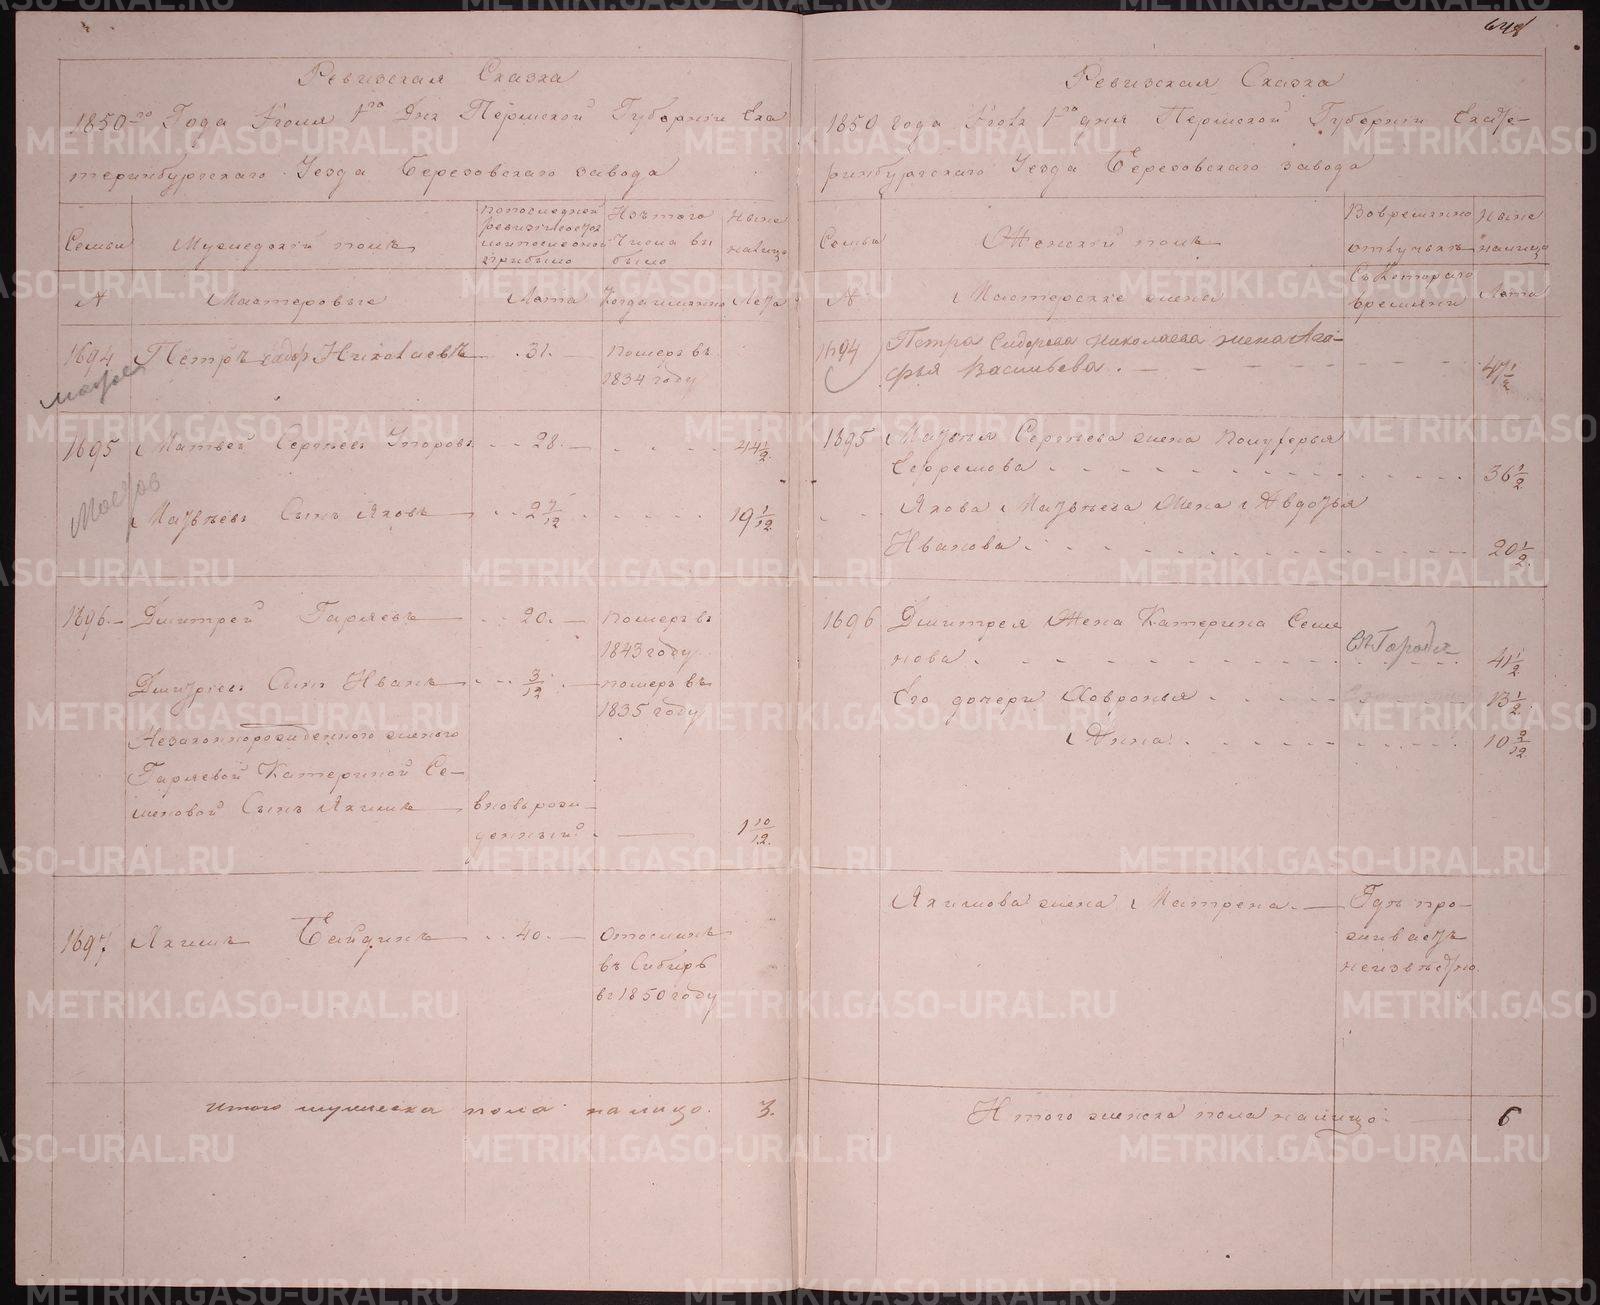 648
Ревизская Сказка
1850-го Года Июля 1го Дня Пермской Губернiи Ека
теринбургскаго Уезда Березовскаго завода
Семьи
Мужескiй полъ
по последней
ревизiи
прибыло
Изъ того
числа вы
было
Ныне
налицо
№
Мастеровые
Лета
Когда имянно
Лета
1694 Петръ Сидор Николаевъ 31. Померъ въ
1834 году
1695 Матвей Сергеевъ 28. 44 1/2.
Матвеевъ Сынъ Яковъ 2 7/12 19 1/12
1696 Дмитрей Гаряевъ 20. Померъ въ
1843 году
Дмитрiевъ Сынъ Иванъ 3/12 померъ въ
1835 году
Незаконнорожденного женого
Гаряевой Катериной Се-
меновой Сынъ Якимъ вновь рож-
денный. 1 10/12.
1697 Якимъ 40. Отосланъ
въ Сибирь
въ 1850 году
Итого мужеска пола налицо. 3.
Ревизская Сказка
1850 года Июля 1го дня Пермской Губернiи Екате-
ринбургскаго Уезда Березовскаго завода
Семьи
Женскiй полъ
Во временно
отлучкъ
Ныне
налицо
№
Мастерскiе жены
Съ Котораго
времяни
Лета
1694 Петра Сидорова Николаева жена Ага-
фья Васильева. 47 1/2
1695 Матвея Сергеева жена
36 1/2
Якова Матвеева Жена Авдотья
Иванова 20 1/2.
1696 Дмитрея Жена Катерина Семе
нова. въ Городъ 41 1/2
Его дочери Ховронья 13 1/2.
Анна. 10 2/12
Якимова жена Матрена. Где про-
живаетъ
неизвестно.
Итого женска пола налицо. 6
METRIKI.GASO-URAL.RU